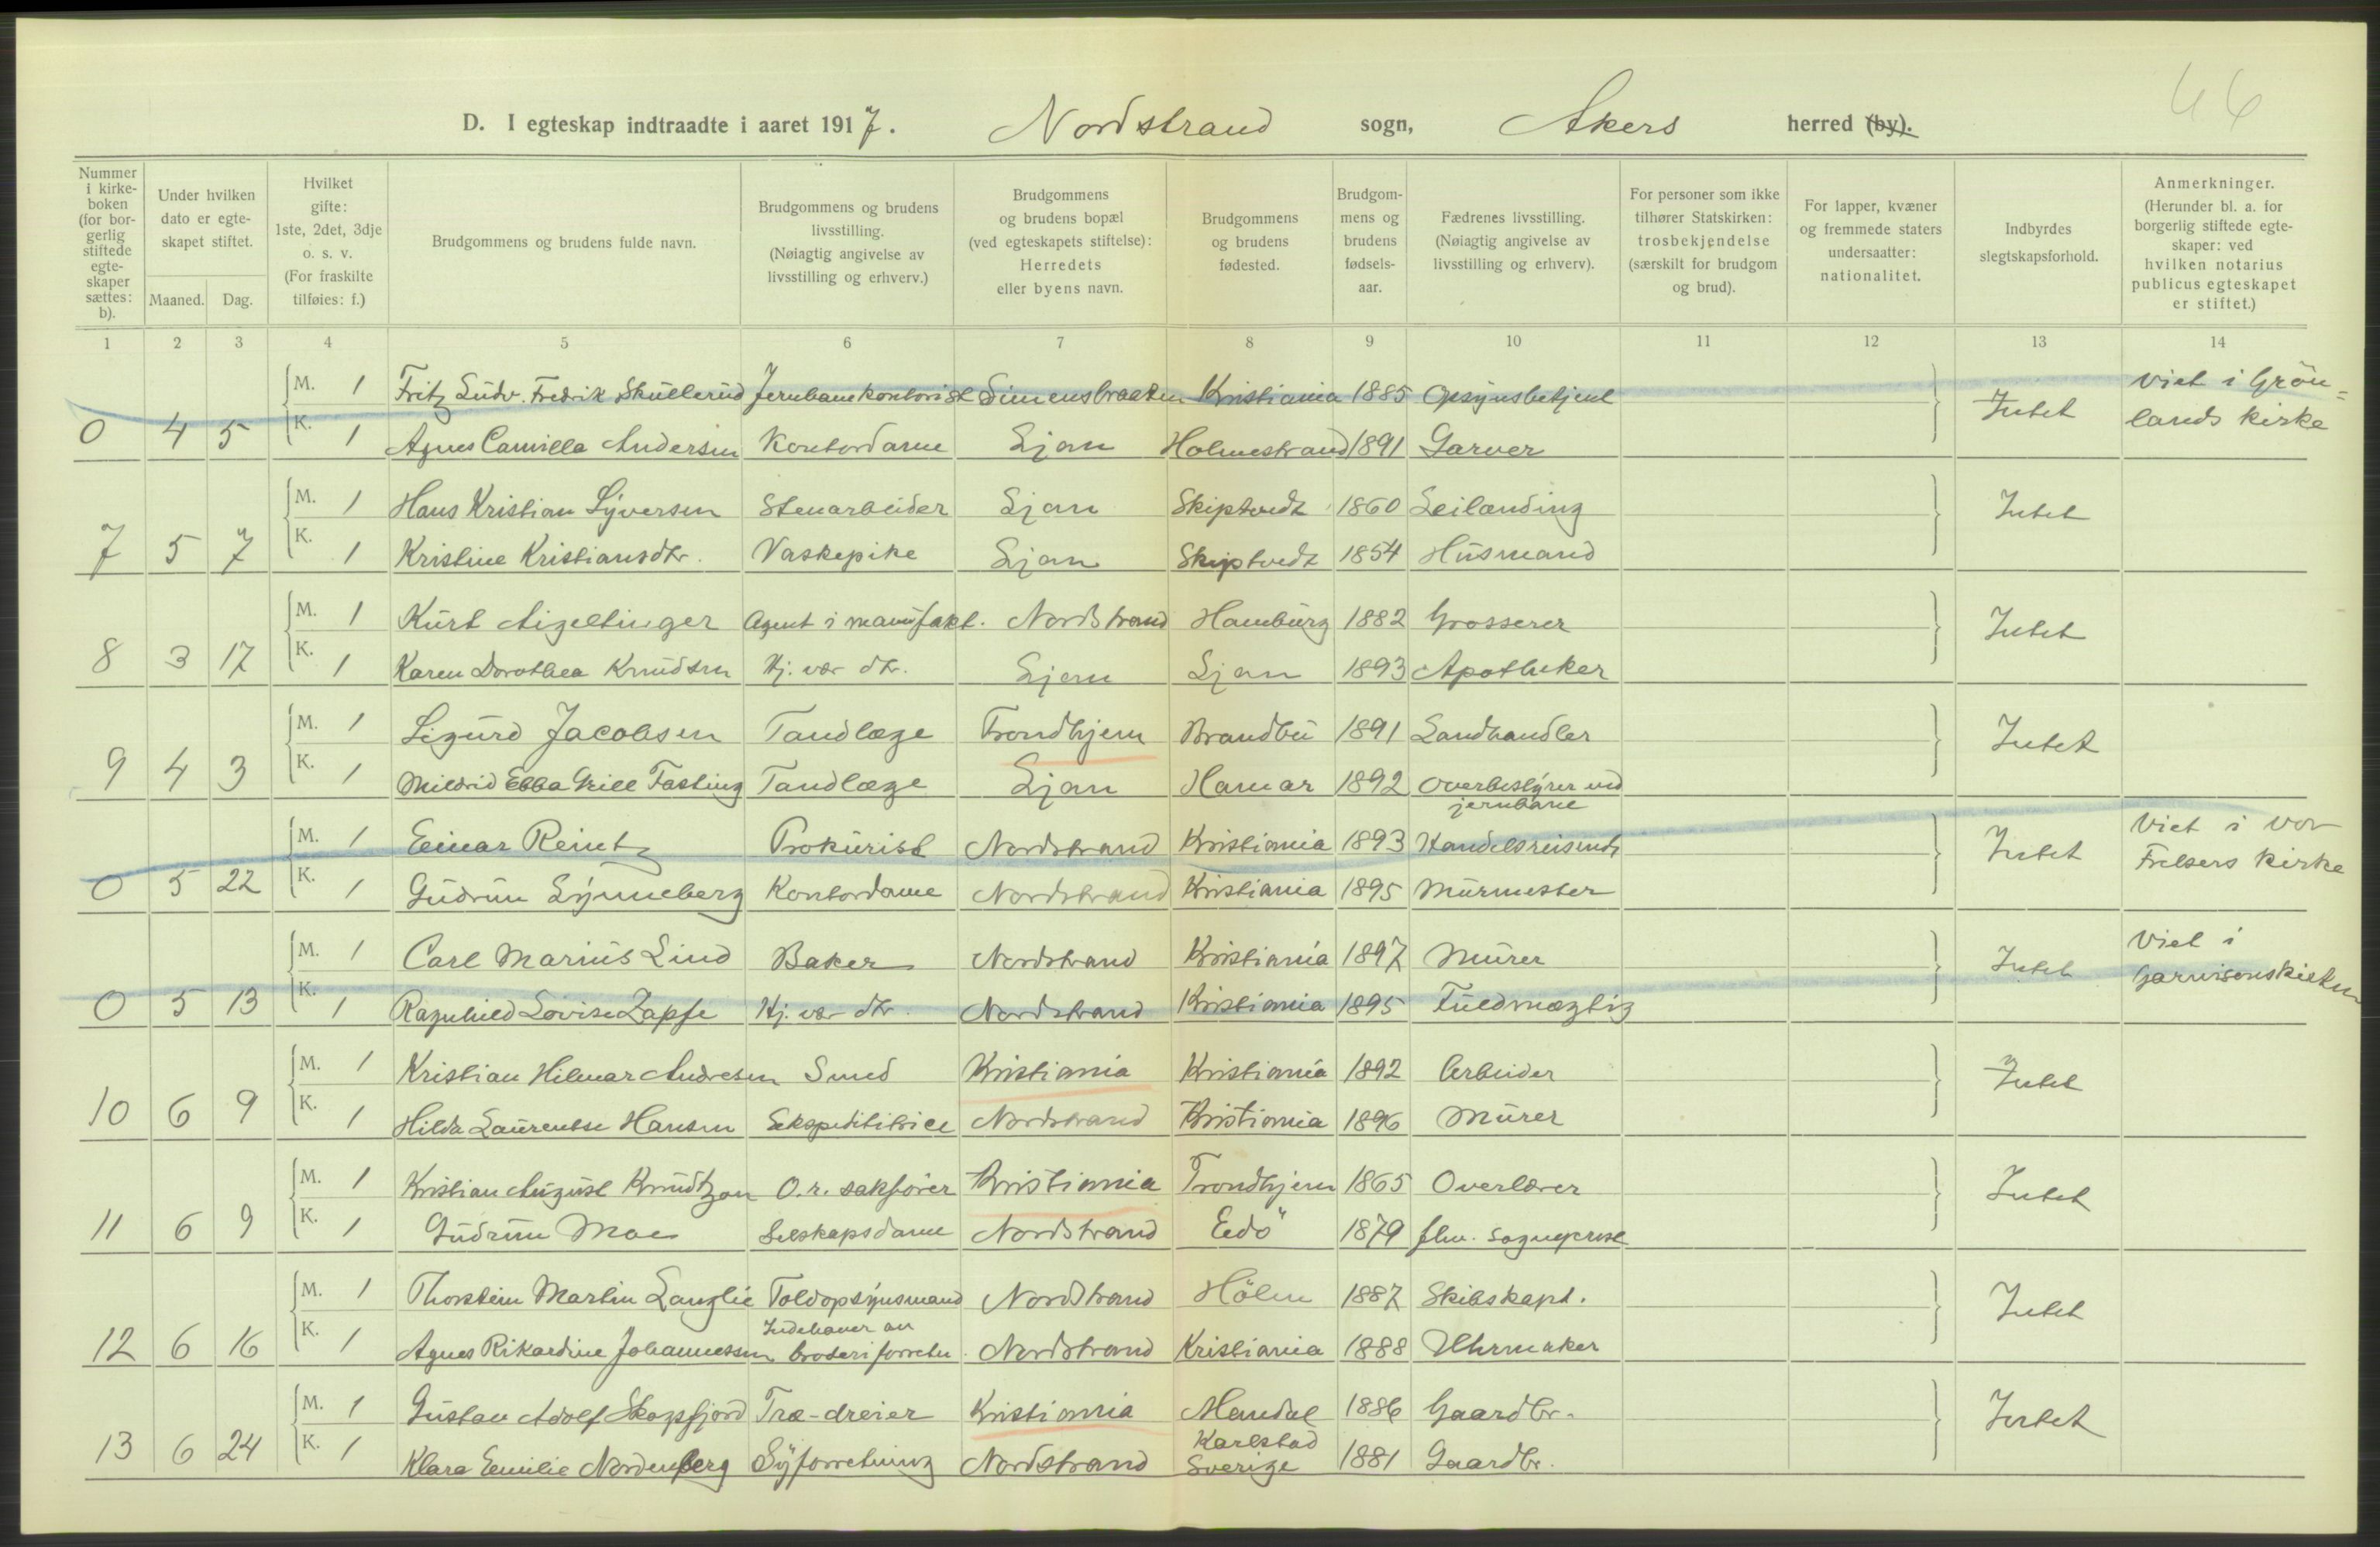 46
D. I egteskap indtraadte i aaret 1917. Nordstrand sogn, Akers herred (by).
Nummer i kirkeboken (for borgerlig stiftede egteskaper sættes: b).
Under hvilken dato er egteskapet stiftet.
Maaned. Dag.
Hvilket gifte: 1ste, 2det, 3dje o. s. v. (For fraskilte tilføies: f.)
Brudgommens og brudens fulde navn.
Brudgommens og brudens livsstilling. (Nøiagtig angivelse av livsstilling og erhverv.)
Brudgommens og brudens bopæl (ved egteskapets stiftelse): Herredets eller byens navn.
Brudgommens og brudens fødested.
Brudgommens og brudens fødselsaar.
Fædrenes livsstilling. (Nøiagtig angivelse av livsstilling og erhverv).
For personer som ikke tilhører Statskirken: trosbekjendelse (særskilt for brudgom og brud).
For lapper, kvæner og fremmede staters undersaatter: nationalitet.
Indbyrdes slegtskapsforhold.
Anmerkninger. (Herunder bl. a. for borgerlig stiftede egteskaper: ved hvilken notarius publicus egteskapet er stiftet.)
1 2 3 4 5 6 7 8 9 10 11 12 13 14
M. 1 Fritz Ludv. Fredrik Skullerud Jernbanekontorist Simensbraaten Kristiania 1885 Opsynsbetjent Intet Viet i Grön=
0 4 5 K. 1 Agnes Camilla Andersen Kontordame Ljan Holmestrand 1891 Garver lands kirke
M. 1 Hans Kristian Syversen Stenarbeider Ljan Skiptvedt 1860 Leilænding Intet
7 5 7 K. 1 Kristine Kristiansdtr. Vaskepike Ljan Skiptvedt 1854 Husmand
M. 1 Kurt Aigeltinger Agent i manufakt. Nordstrand Hamburg 1882 Grosserer Intet
8 3 17 K. 1 Karen Dorothea Knudsen Hj. vær. dtr. Ljan Ljan 1893 Apotheker
M. 1 Sigurd Jacobsen Tandlæge Trondhjem Brandbu 1891 Landhandler Intet
9 4 3 K. 1 Mildrid Ebba Grill Fasting Tandlæge Ljan Hamar 1892 Overbestyrer ved
jernbane
M. 1 Einar Reintz Prokurist Nordstrand Kristiania 1893 Handelsreisende Intet Viet i Vor
0 5 22 K. 1 Gudrun Lynneberg Kontordame Nordstrand Kristiania 1895 Murmester Frelsers kirke
M. 1 Carl Marius Lind Baker Nordstrand Kristiania 1897 Murer Intet Viet i
0 5 13 K. 1 Ragnhild Lovise Zapfe Hj. vær. dtr. Nordstrand Kristiania 1895 Fuldmægtig Garnisonskirken
M. 1 Kristian Hilmar Andresen Smed Kristiania Kristiania 1892 Arbeider Intet
10 6 9 K. 1 Hilda Laurentse Hansen Ekspeditrice Nordstrand Kristiania 1896 Murer
M. 1 Kristian August Knudtzon O. r. sakfører Kristiania Trondhjem 1865 Overlærer Intet
11 6 9 K. 1 Gudrun Moe Selskapsdame Nordstrand Edö 1879 fhv. sogneprest
M. 1 Thorstein Martin Langlie Toldopsynsmand Nordstrand Hölen 1887 Skibskapt. Intet
Indehaver av
12 6 16 K. 1 Agnes Rikardine Johannessen broderiforretn. Nordstrand Kristiania 1888 Uhrmaker
M. 1 Gustav Adolf Skogsfjord Træ-dreier Kristiania Mandal 1886 Gaardbr. Intet
Karlstad
13 6 24 K. 1 Klara Emilie Nordenberg Syforretning Nordstrand Sverige 1881 Gaardbr.